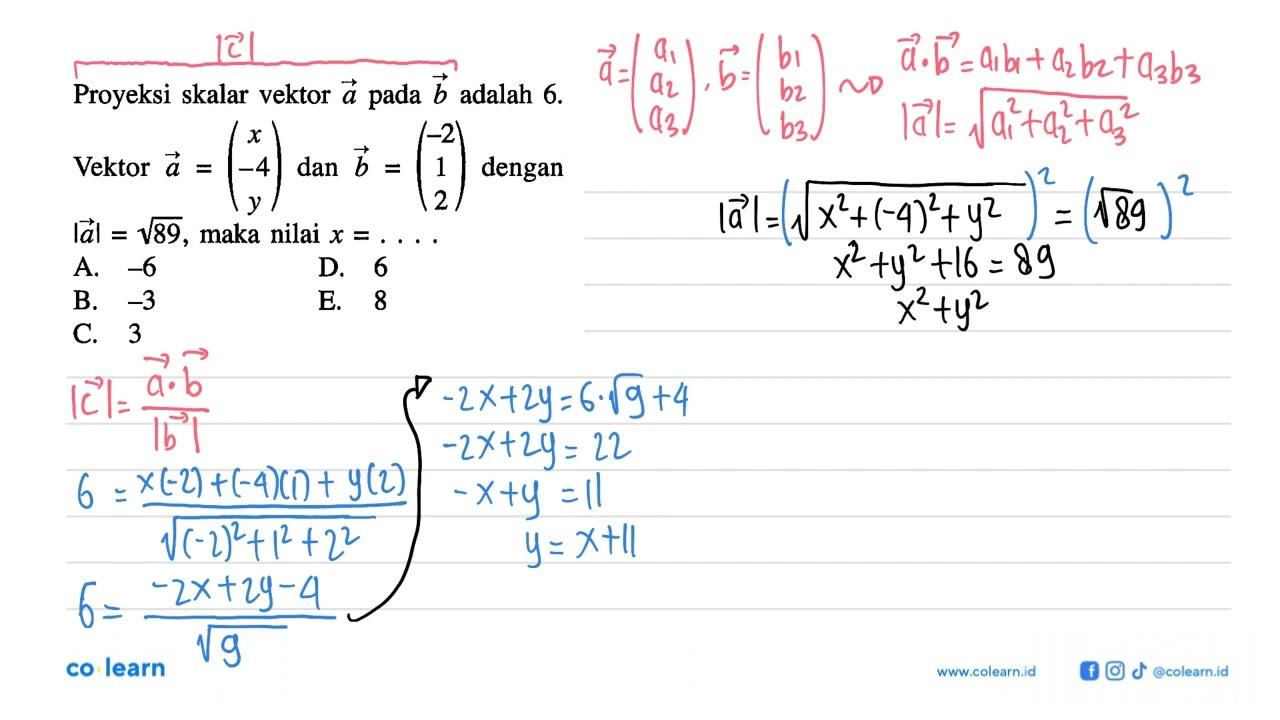 |c⃗|
Proyeksi skalar vektor a⃗ pada b⃗ adalah 6.
Vektor a⃗ = (x -4 y) dan b⃗ = (-2 1 2) dengan
|a⃗| = √89, maka nilai x = . . . .
A. -6
B. -3
C. 3
D. 6
E. 8
a⃗=(a₁ a₂ a₃), b⃗=(b₁ b₂ b₃) ~> a⃗·b⃗=a₁b₁+a₂b₂+a₃b₃
|a⃗|=√(a₁²+a₂²+a₃²)
|a⃗|=(√(x²+(-4)²+y²))²=(√89)²
x²+y²+16=89
x²+y²
|c⃗|=a⃗·b⃗/|b⃗|
6=(x(-2)+(-4)(1)+y(2))/√((-2)²+1²+2²)
6=(-2x+2y-4)/√9
-2x+2y=6·√9+4
-2x+2y=22
-x+y=11
y=x+11
co learn
www.colearn.id
@colearn.id